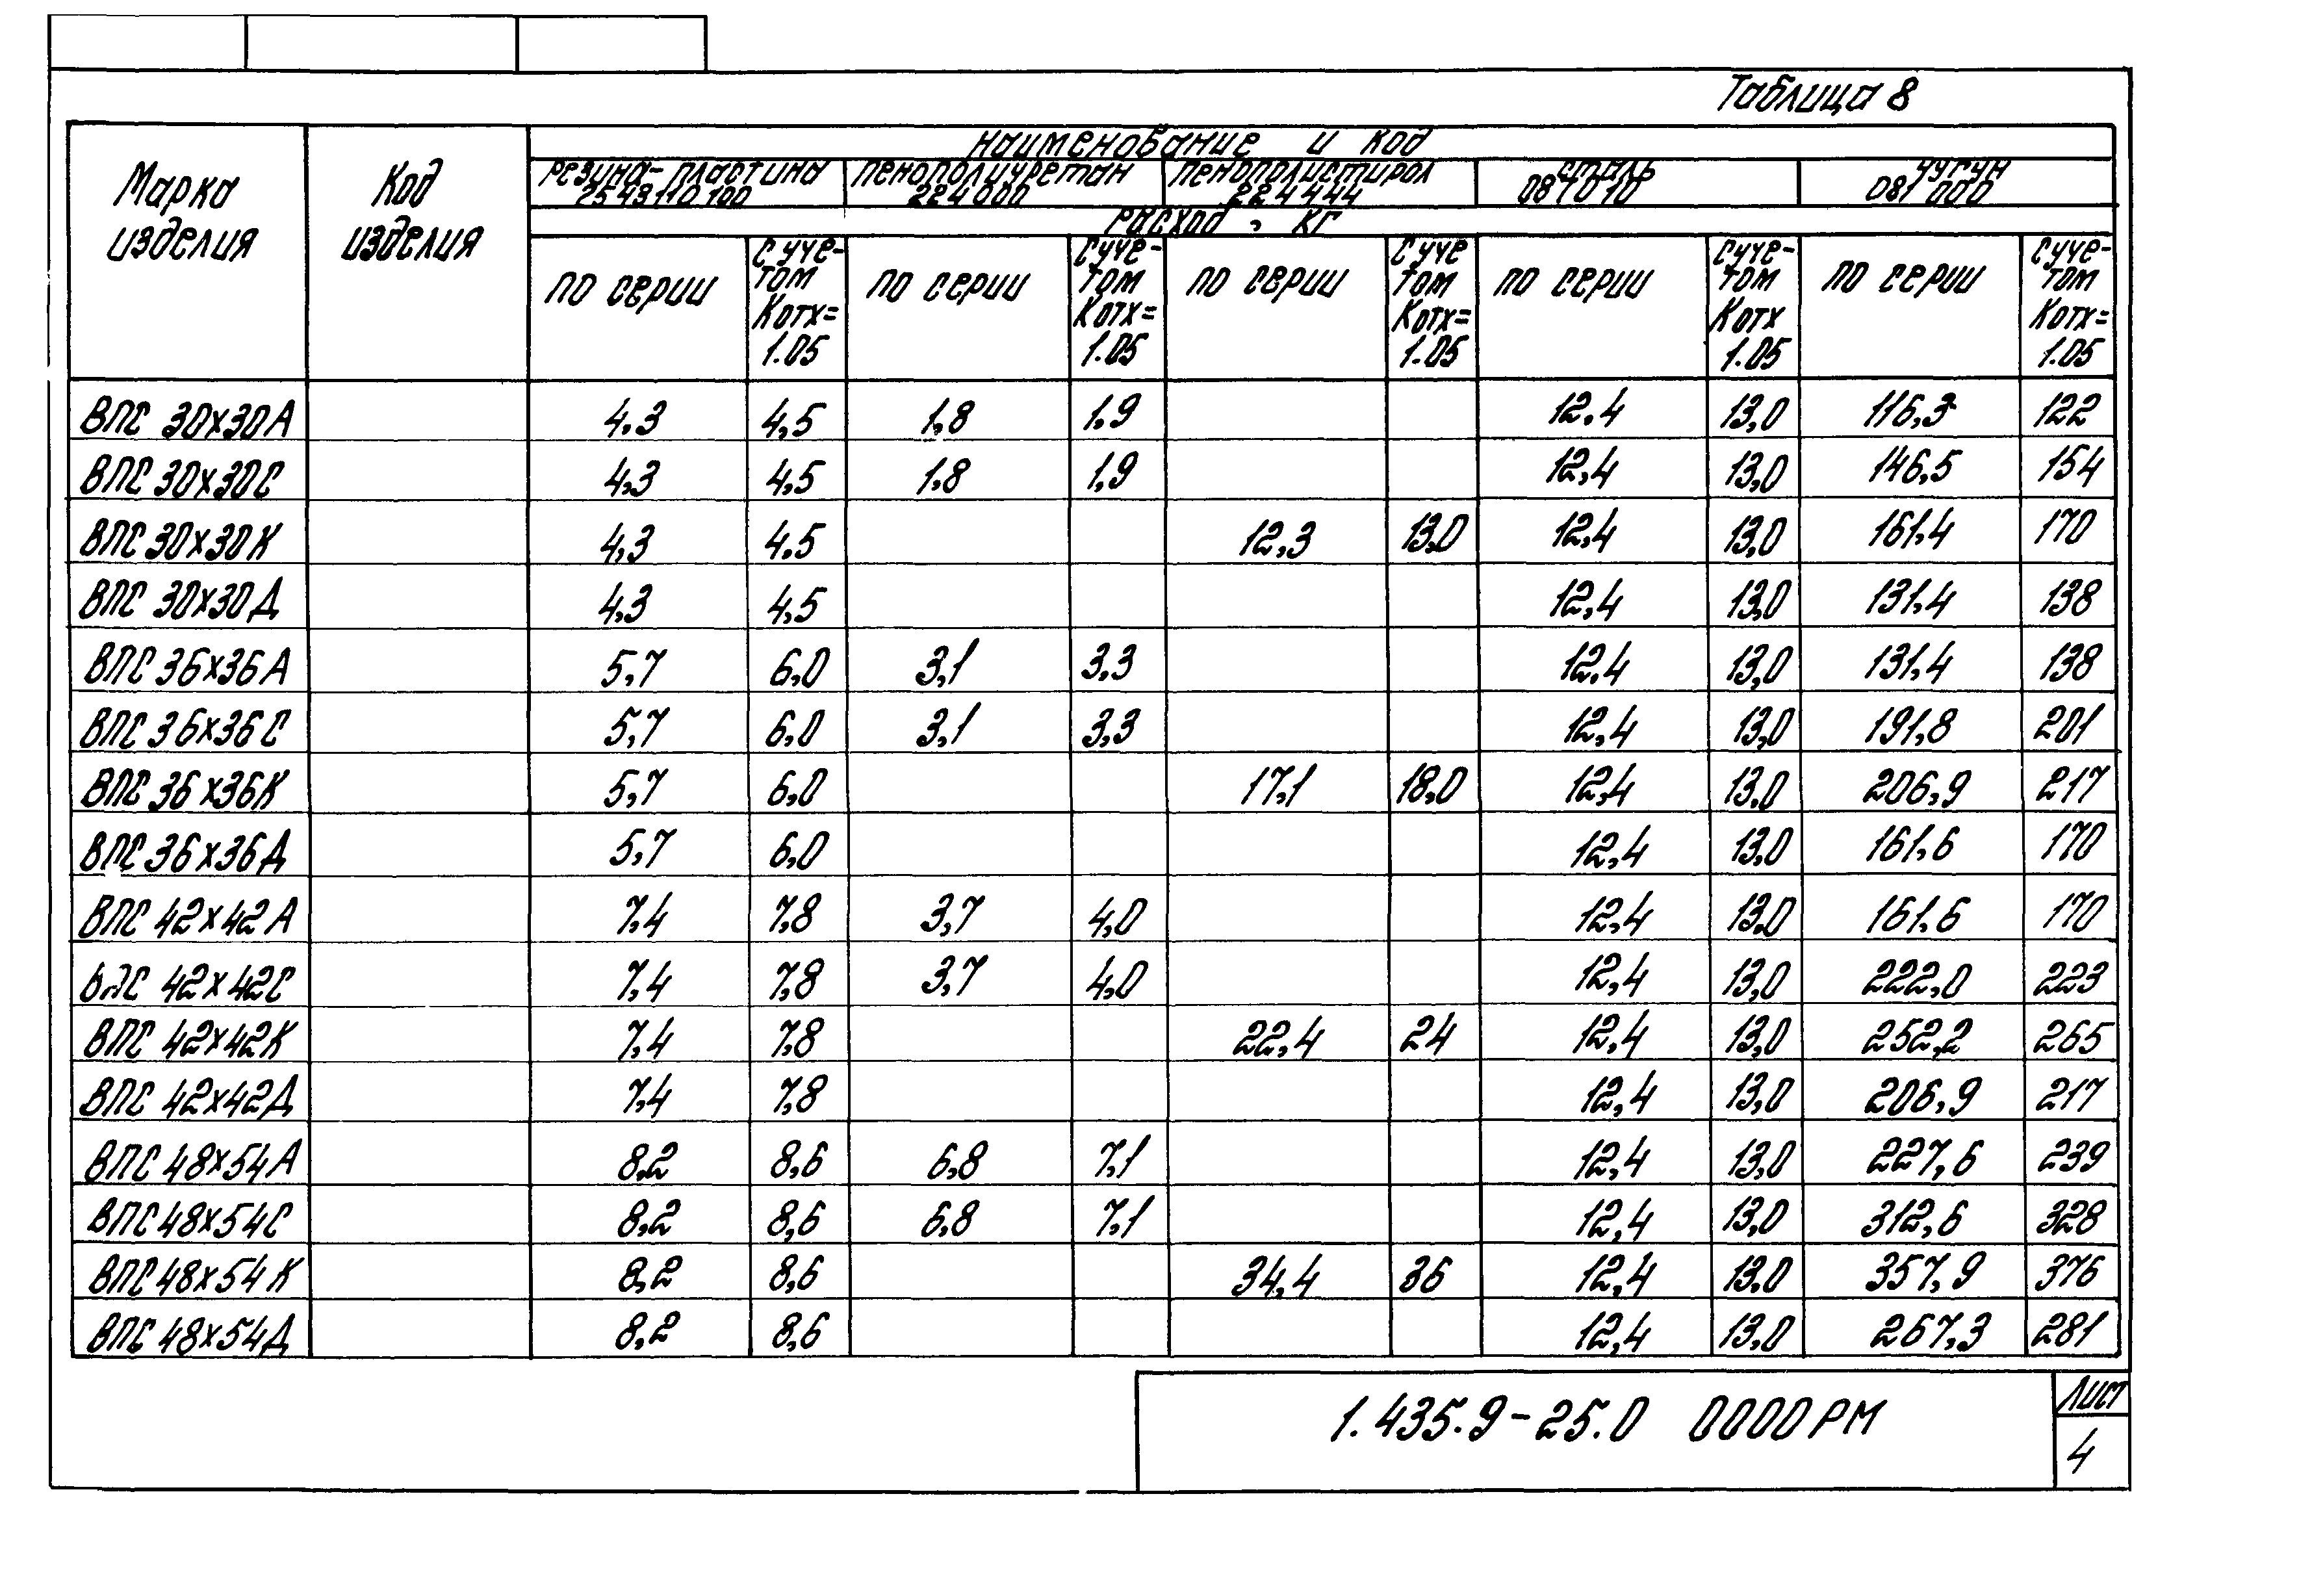 Таблица 8
Марка изделия | Код изделия | наименование и код
резина-пластина 2549110100 | пенополиуретан 224000 | пенополистирол 224444 | сталь 081010 | чугун 081000
расход, кг
по серии | с уче-том Kотх=1.05 | по серии | с уче-том Kотх=1.05 | по серии | с уче том Kотх=1.05 | по серии | с уче-том Kотх 1.05 | по серии | с уче-том Kотх=1.05
ВПС 30х30А | 4,3 | 4,5 | 1,8 | 1,9 | 12,4 | 13,0 | 116,3 | 122
ВПС 30х30С | 4,3 | 4,5 | 1,8 | 1,9 | 12,4 | 13,0 | 146,5 | 154
ВПС 30х30К | 4,3 | 4.5 | 12,3 | 13,0 | 12,4 | 13,0 | 161,4 | 170
ВПС 30х30Д | 4,3 | 4,5 | 12,4 | 13,0 | 131,4 | 138
ВПС 36х36А | 5,7 | 6,0 | 3,1 | 3,3 | 12,4 | 13,0 | 131,4 | 138
ВПС 36х36С | 5,7 | 6,0 | 3,1 | 3,3 | 12,4 | 13,0 | 191,8 | 201
ВПС 36х36К | 5,7 | 6,0 | 17,1 | 18,0 | 12,4 | 13,0 | 206,9 | 217
ВПС 36х36Д | 5,7 | 6,0 | 12,4 | 13,0 | 161,6 | 170
ВПС 42х42А | 7,4 | 7,8 | 3,7 | 4,0 | 12,4 | 13,0 | 161,6 | 170
ВПС 42х42С | 7,4 | 7,8 | 3,7 | 4,0 | 12,4 | 13,0 | 222,0 | 223
ВПС 42х42К | 7,4 | 7,8 | 22,4 | 24 | 12,4 | 13,0 | 252,2 | 265
ВПС 42х42Д | 7,4 | 7,8 | 12,4 | 13,0 | 206,9 | 217
ВПС 48х54А | 8,2 | 8,6 | 6,8 | 7,1 | 12,4 | 13,0 | 227,6 | 239
ВПС 48х54С | 8,2 | 8,6 | 6,8 | 7,1 | 12,4 | 13,0 | 312,6 | 328
ВПС 48х54К | 8,2 | 8,6 | 34,4 | 36 | 12,4 | 13,0 | 357,9 | 376
ВПС 48х54Д | 8,2 | 8,6 | 12,4 | 13,0 | 267,3 | 281
1.435.9-25.0 0000РМ
Лист
4